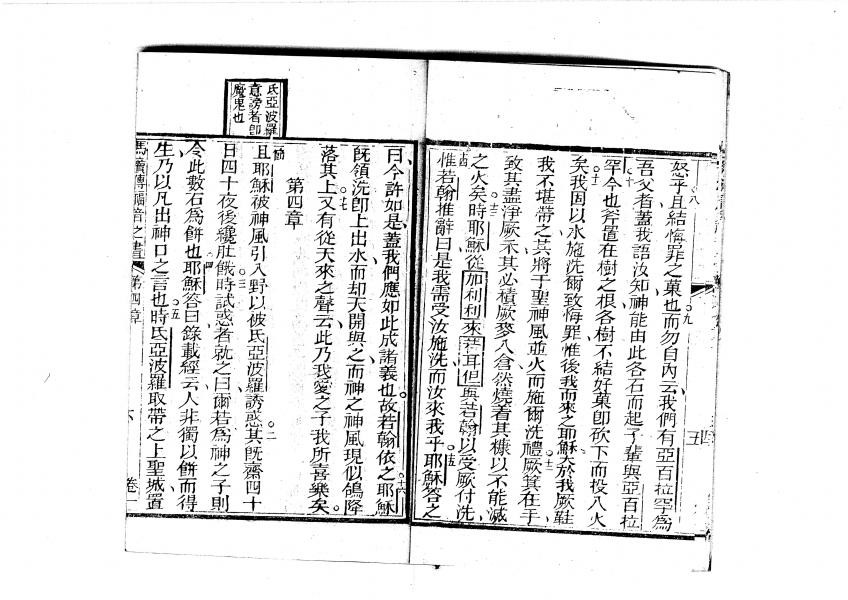 怒乎且結悔罪之菓也而勿自內云我們有亞百拉罕為
吾父者蓋我語汝知神能由此各石而起子輩與亞百拉
罕今也斧置在樹之根各樹不結好菓卽砍下而投入火
矣我固以水施洗爾致悔罪惟後我而來之耶穌大於我厥鞋
我不堪帶之其將于聖神風並火而施爾洗禮厥箕在手
致其盡淨厥禾其必積厥麥入倉然燒着其糠以不能滅
之火矣時耶穌從加利利來若耳但與若翰以受厥付洗
惟若翰推辭曰是我需受汝施洗而汝來我乎耶穌答之
曰今許如是蓋我們應如此成諸義也故若翰依之耶穌
旣領洗卽上出水而却天開與之而神之神風現似鴿降
落其上又有從天來之聲云此乃我愛之子我所喜樂矣
第四章
且耶穌被神風引入野以被氏亞波羅誘惑其旣齋四十
日四十夜後纔肚餓時試惑者就之曰爾若為神之子則
令此數石為餅也耶穌答曰錄載經云人非獨以餅而得
生乃以凡出神口之言也時氏亞波羅取帶之上聖城置
氏亞波羅
意謗者卽
魔鬼也
馬竇傳福音之書
第四章
六
卷一